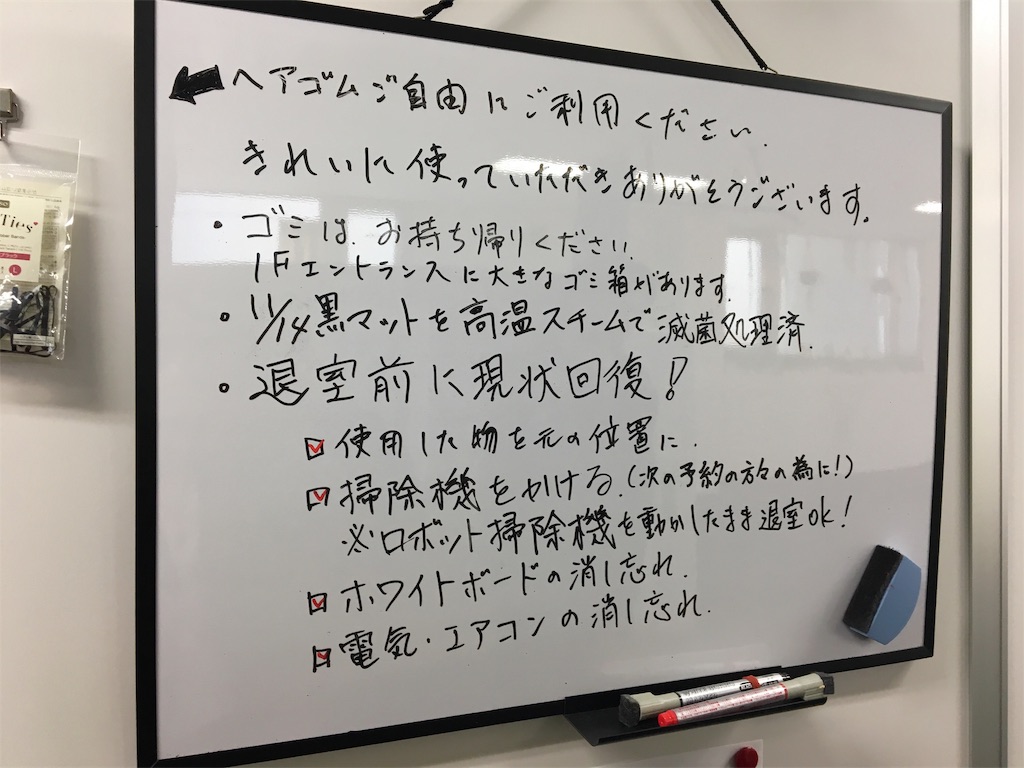 ←ヘアゴムご自由にご利用ください.
きれいに使っていただきありがとうございます。
・ゴミは、お持ち帰りください.
1Fエントランスに大きなゴミ箱があります.
・11/14黒マットを高温スチームで滅菌処理済.
・退室前に現状回復!
☑使用した物を元の位置に.
☑掃除機をかける.(次の予約の方々の為に!)
※ロボット掃除機を動かしたまま退室OK!
☑ホワイトボードの消し忘れ.
☑電気・エアコンの消し忘れ.
Ties
L